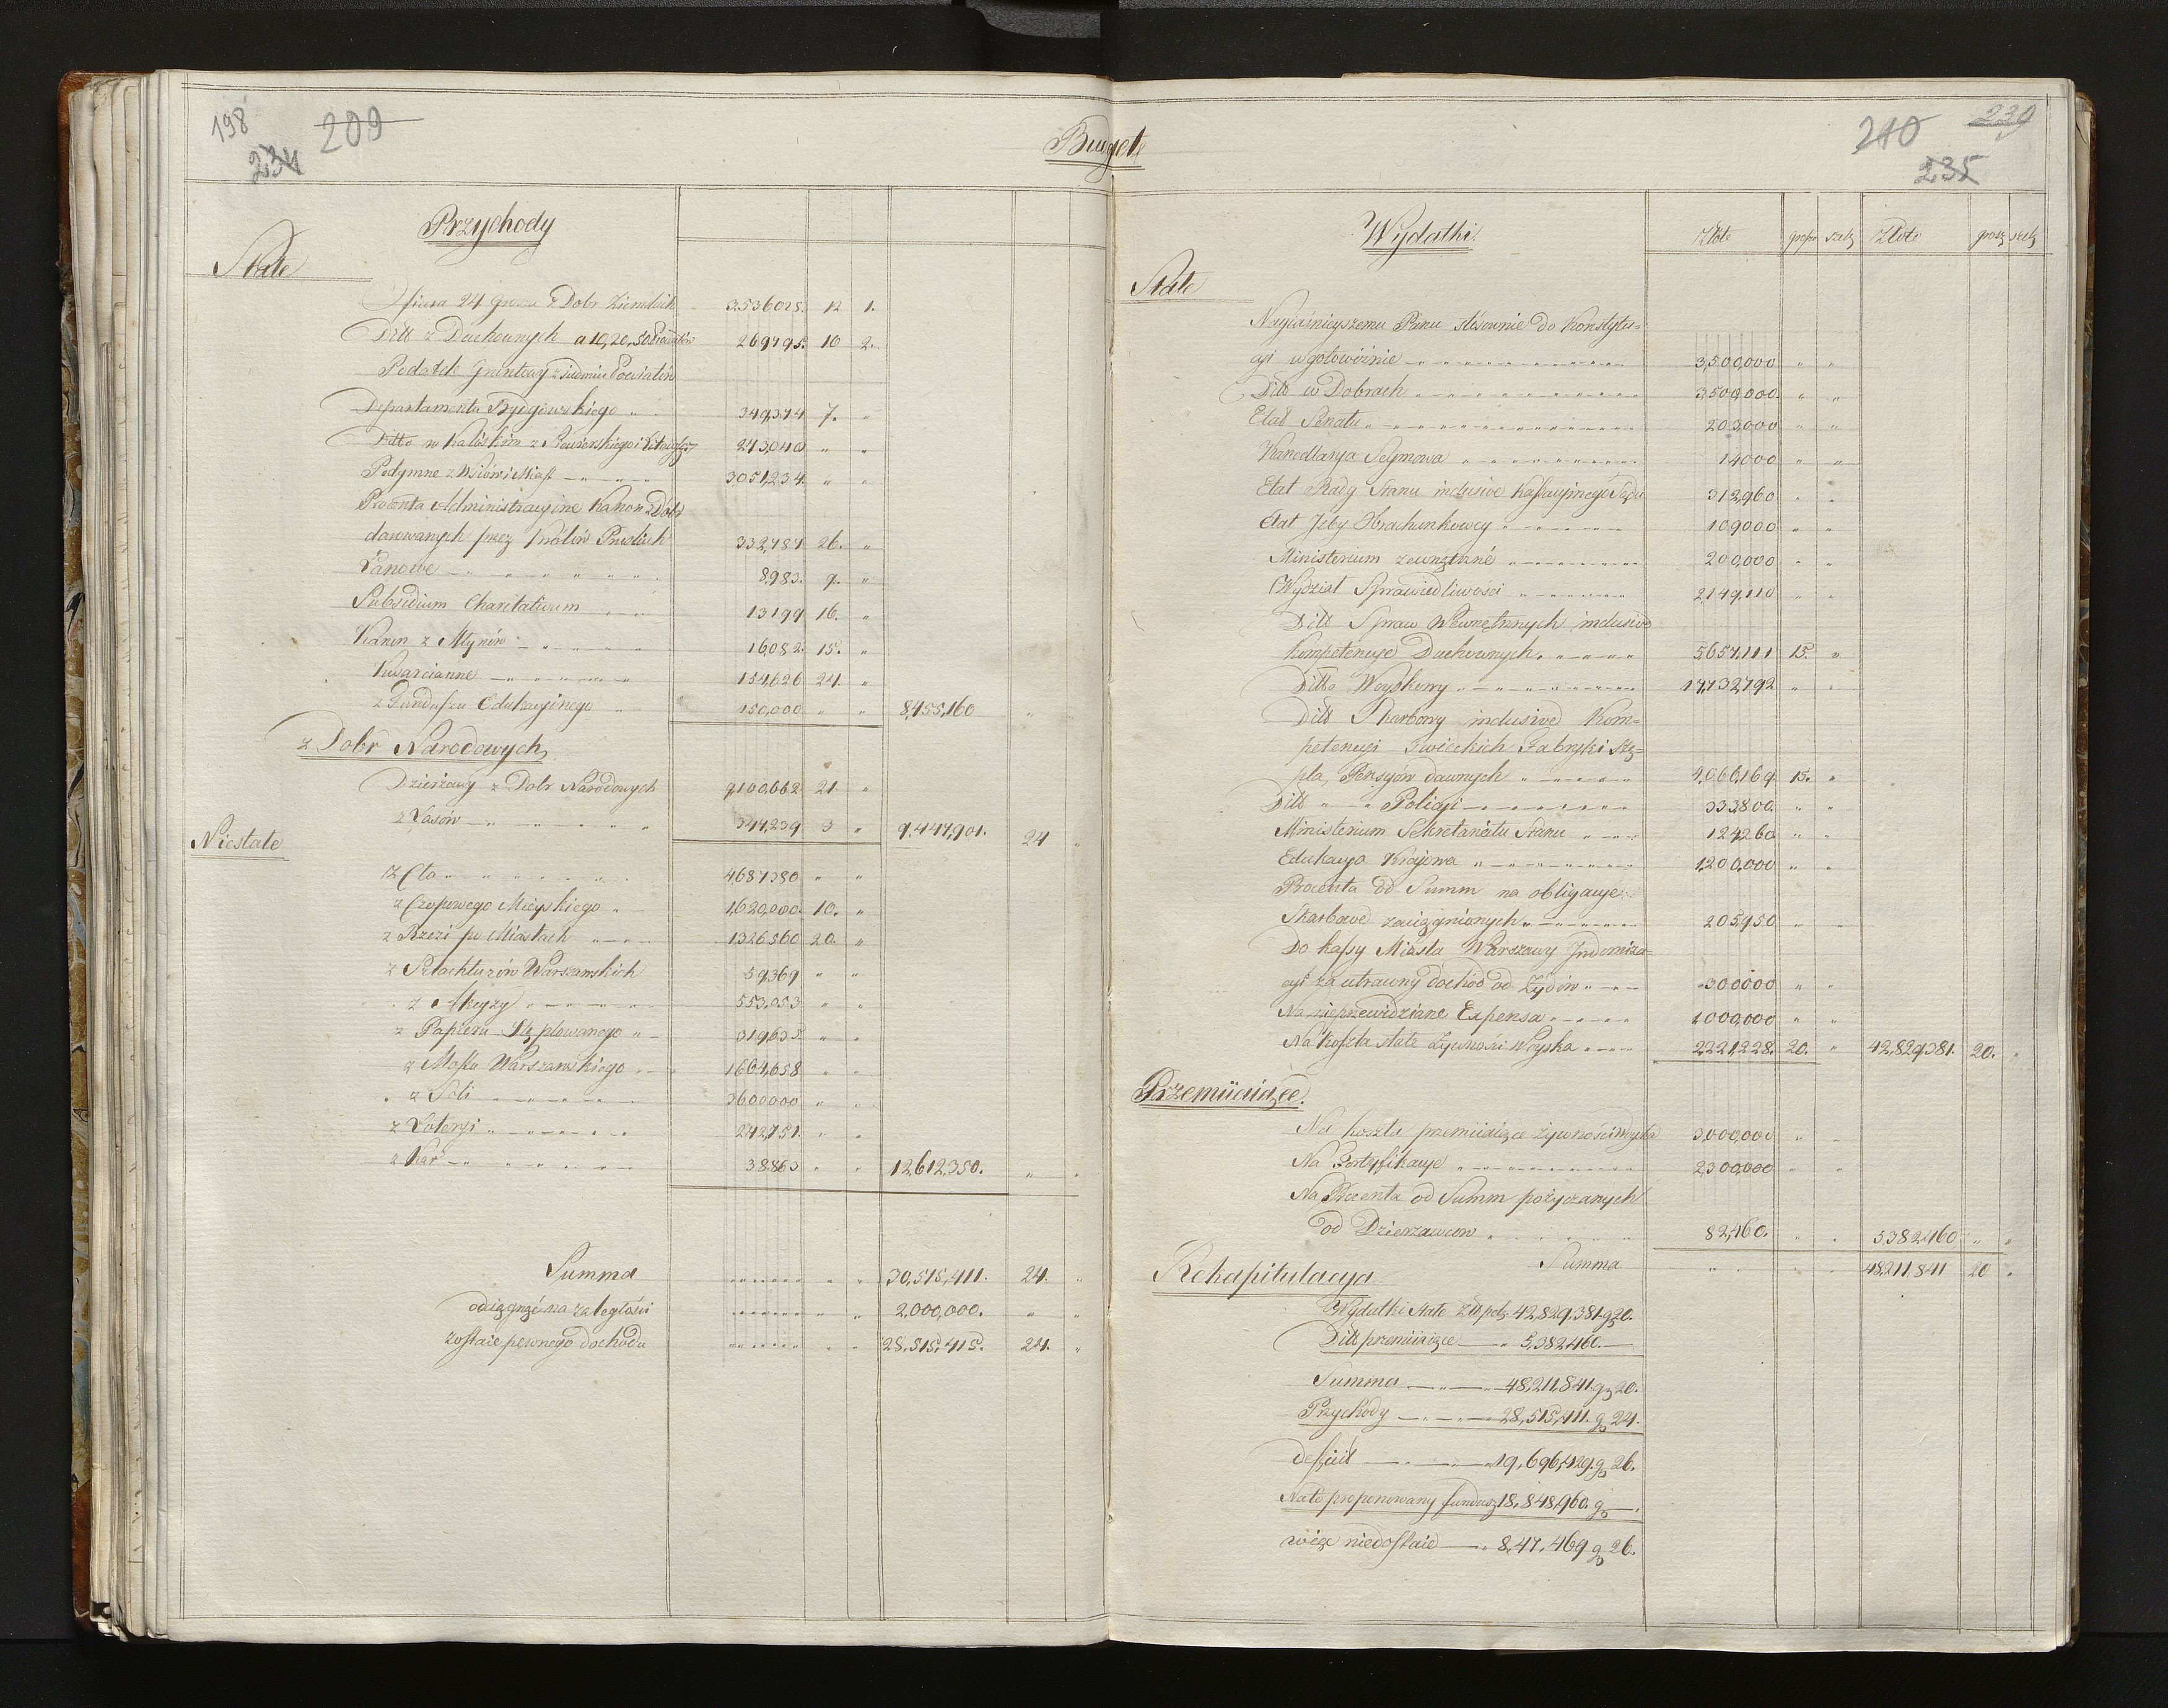 198
234
209
Budget
Przychody
Stałe
Ofiara 24 grosza z Dobr Ziemskich 3,536028. 12 1.
Ditt z Duchownych a 10, 20, 50 Procentów 269795. 10 2.
Podatek Gruntowy z siedmiu Powiatów
Departamentu Bydgowskiego 349,374 7. "
Ditto w Kaliskim z 243,040 " "
Podymne z Wsiów i Miast 3,051,234. " "
Procenta Administracyjne Kanon z Dóbr
darowanych przez Królów Pruskich 332,787 26. "
Łanowe 8,983. 9. "
Subsidium Charitativum 13199 16. "
Kanon z Młynów 16,082. 15. "
Kwarcianne 154,626 24. "
z Funduszu Edukacyinego 150,000 " " 8,455,160 "
z Dobr Narodowych
Dzierżawy z Dobr Narodowych 9,100,662 21. "
z Lasów 347,239 3 " 9,447,901. 24 "
Niestałe
z Cła 4687380 " "
z Czopowego Mieyskiego 1,620,000. 10. "
z Rzezi po Miastach 1,326560 20. "
z Szlachtuzów Warszawskich 59,369 " "
z Akcyzy 553,053 " "
z Papieru Stęplowanego 319,635. " "
z Mostu Warszawskiego 1664,658 " "
z Soli 3600000 " "
z Loteryi 242,751. " "
z Kar 38863 " " 12,612,350. " "
Summa 30,515,411. 24. "
odiągnąć na zaległości 2,000,000. " "
zostaie pewnego dochodu 28,515,415. 24. "
239
210
235
Wydatki.
Złote grosze szelą Złote grosz szelą
Stałe
Nayiaśnieyszemu Panu stósownie do Konstytu=
cyi w gotowiźnie 3,500,000 " "
Ditt w Dobrach 3500,000. " "
Etat Senatu 203,000 " "
Kancellarya Seymowa 14000 " "
Etat Rady Stanu inclusive Kassacyinego Sądu 312,960 " "
Etat Izby Obrachunkowey 109000 " "
Ministerium zewnętrzné 200,000 " "
Wydział Sprawiedliwości 2,149,110 " "
Ditt Spraw Wewnętrznych inclusive
kompetencye Duchownych 5,657,111 15. "
Ditto Woyskowy 17,732,792 " "
Ditt Skarbowy inclusive Kom=
petencyi Swieckich Fabryki Stę=
pla, Pensyów dawnych 4,066,169. 15. "
Ditt " Policyi 333,800. " "
Ministerium Sekretariatu Stanu 124260 " "
Edukacya Krajowa 1,200,000 " "
Procenta od Summ na obligacye
Skarbowe zaciągnionych 205,950 " "
Do kassy Miasta Warszawy Indemniza=
cyi za utracony dochód od Żydów 300000 " "
Na nieprzewidziane Expensa 1,000,000 " "
Na koszta stałe Żywności Woyska 2,221,228. 20. " 42,829,381. 20. "
Przemiiaiące.
Na koszta przemiiaiące żywności Woyska 3,000,000 " "
Na Fortyfikacye 2,300,000 " "
Na Procenta od Summ pożyczanych
od Dzierżawcow 82,460. " " 5382460 " "
Summa " " " 48,211,841 20 "
Rekapitulacya
Wydatki Stałe Złł pol: 42,829,381. g 20.
Ditt przemiiaiące 5,382,460.
Summa 48,211,841. g 20.
Przychody 28,515,411. g 24.
deficit 19,696,429. g 26.
Na to proponowany fundusz 18,848,960. g
więc niedostaie 8,47,469 g 26.